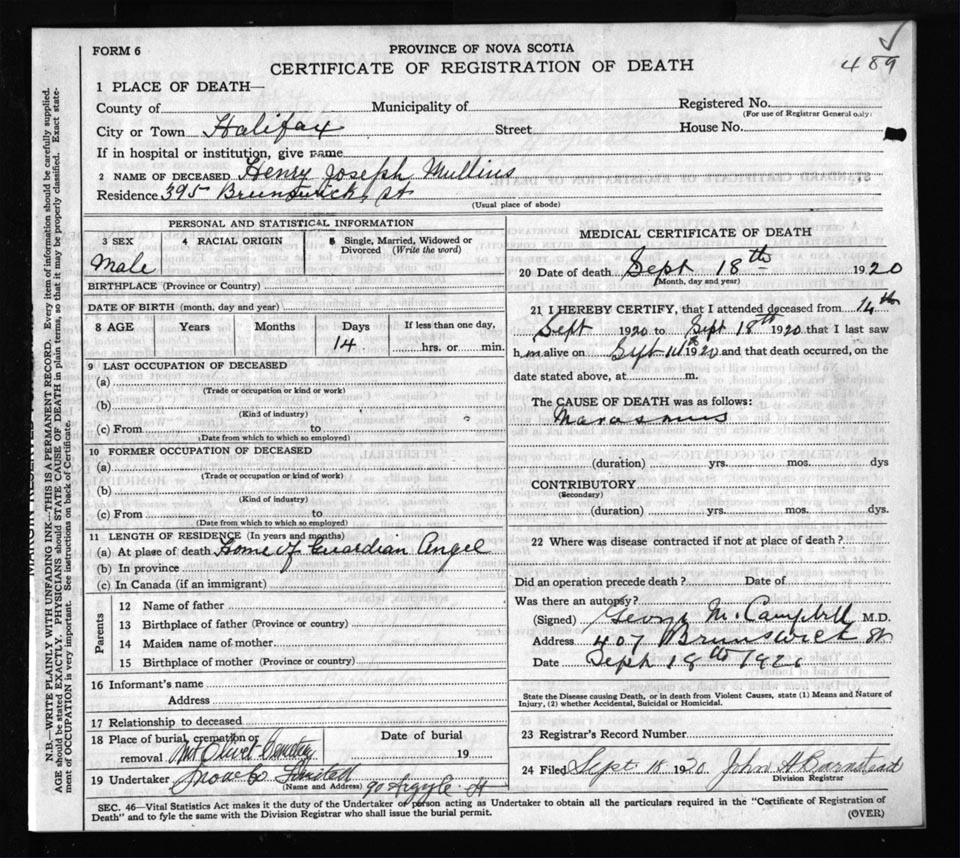 489
FORM 6
PROVINCE OF NOVA SCOTIA
CERTIFICATE OF REGISTRATION OF DEATH
1 PLACE OF DEATH—
County of Municipality of Registered No.
(For use of Registrar General only)
City or Town Halifax Street House No.
If in hospital or institution, give name
2 NAME OF DECEASED Henry Joseph Mullins
Residence 395 Brunswick St
(Usual place of abode)
PERSONAL AND STATISTICAL INFORMATION
3 SEX 4 RACIAL ORIGIN 5 Single, Married, Widowed or Divorced (Write the word)
Male
BIRTHPLACE (Province or Country)
DATE OF BIRTH (month, day and year)
8 AGE Years Months Days If less than one day,
14 hrs. or min.
9 LAST OCCUPATION OF DECEASED
(a)
(Trade or occupation or kind of work)
(b)
(Kind of industry)
(c) From to
(Date from which to which so employed)
10 FORMER OCCUPATION OF DECEASED
(a)
(Trade or occupation or kind of work)
(b)
(Kind of industry)
(c) From to
(Date from which to which so employed)
11 LENGTH OF RESIDENCE (In years and months)
(a) At place of death Home of Guardian Angel
(b) In province
(c) In Canada (if an immigrant)
Parents
12 Name of father
13 Birthplace of father (Province or country)
14 Maiden name of mother
15 Birthplace of mother (Province or country)
16 Informant's name
Address
17 Relationship to deceased
18 Place of burial, cremation or removal Mt Olivet Cemetery Date of burial 19
19 Undertaker Snow & Co
(Name and Address) 90 Argyle St
MEDICAL CERTIFICATE OF DEATH
20 Date of death Sept 18th 1920
(Month, day and year)
21 I HEREBY CERTIFY, that I attended deceased from 14th
Sept 1920 to Sept 18th 1920 that I last saw
him alive on Sept 1920 and that death occurred, on the
date stated above, at m.
The CAUSE OF DEATH was as follows:
Marasmus
(duration) yrs. mos. dys
CONTRIBUTORY
(Secondary)
(duration) yrs. mos. dys.
22 Where was disease contracted if not at place of death?
Did an operation precede death? Date of
Was there an autopsy?
(Signed) George M Campbell M.D.
Address 407 Brunswick St
Date Sept 18th 1920
State the Disease causing Death, or in death from Violent Causes, state (1) Means and Nature of
Injury, (2) whether Accidental, Suicidal or Homicidal.
23 Registrar's Record Number
24 Filed Sept 18 1920 John A Barnstead
Division Registrar
SEC. 46—Vital Statistics Act makes it the duty of the Undertaker or person acting as Undertaker to obtain all the particulars required in the "Certificate of Registration of
Death" and to fyle the same with the Division Registrar who shall issue the burial permit.
(OVER)
N.B.—WRITE PLAINLY WITH UNFADING INK—THIS IS A PERMANENT RECORD. Every item of information should be carefully supplied.
AGE should be stated EXACTLY. PHYSICIANS should STATE CAUSE OF DEATH in plain terms, so that it may be properly classified. Exact state-
ment of OCCUPATION is very important. See instructions on back of Certificate.